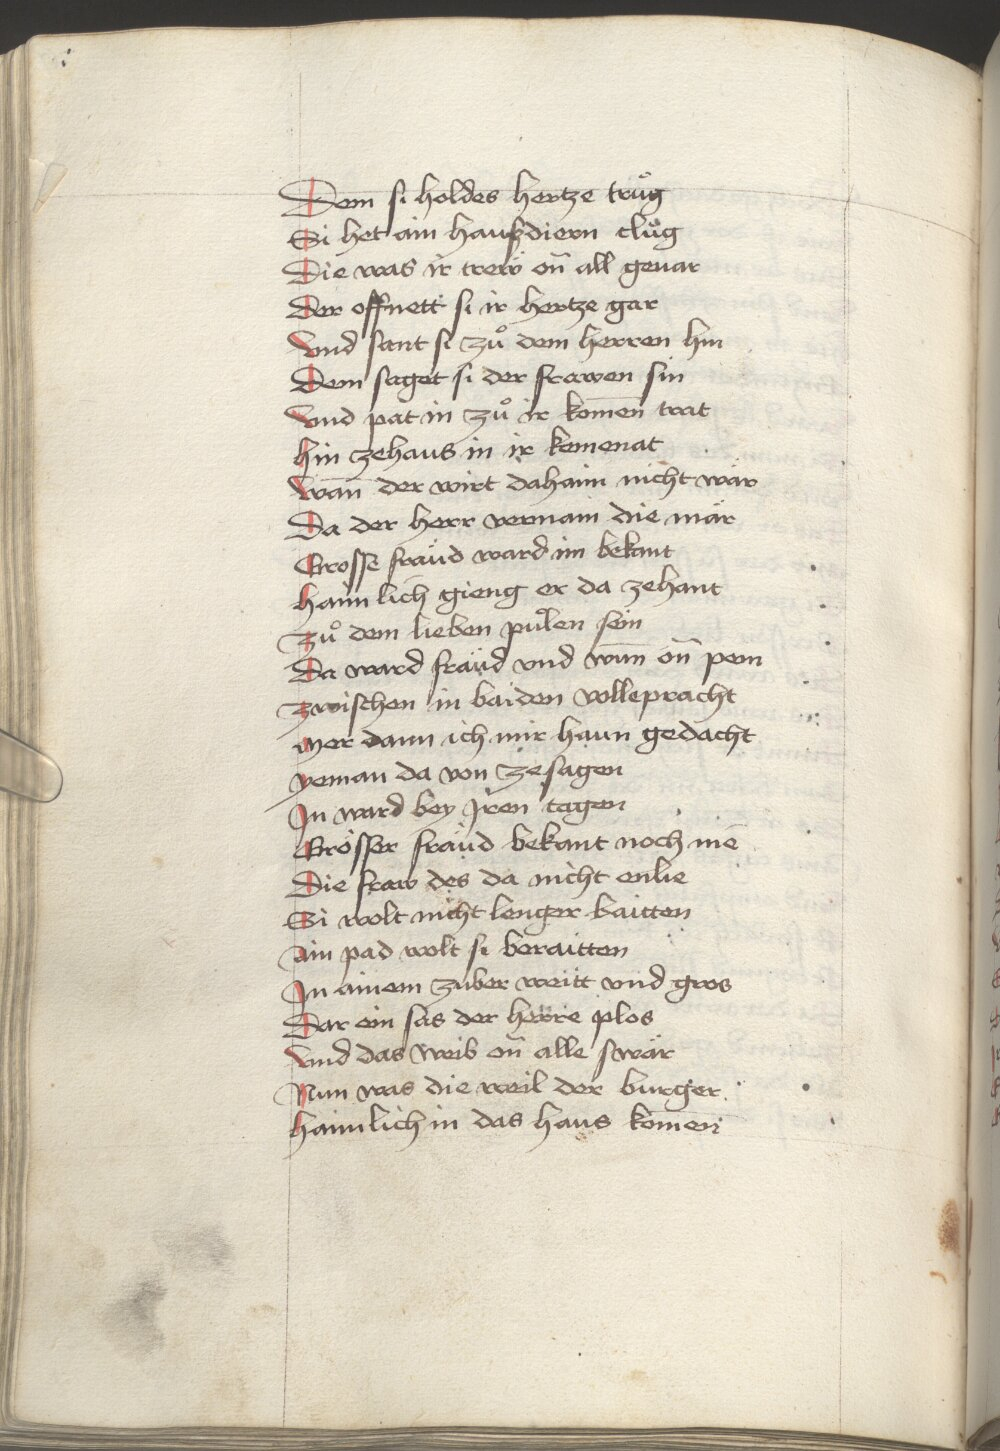 Dem si holdes hertze trůg
Si het ain haußdiern clůg
Die was ir trew on̄ all geuar
Der offnett si ir hertze gar
Vnd sant si zů dem herren hin
Dem saget si der frawen sin
Vnd pat in zů ir komen̄ trat
Hin zehaus in ir kemenat
Wan̄ der wirt dahaim nicht wär
Da der herr vernam die mär
Grosse fräud ward im bekant
Haimlich gieng er da zehant
Zů dem lieben půlen sein
Da ward fräud vnd wun̄ on̄ pein
Zwischen in baiden vollepracht
Mer dann ich mir haun gedacht
Yeman da von ze sagen
In ward bey Iren tagen
Grösser fräud bekant noch me
Die fraw des da nicht enlie
Si wolt nicht lenger baitten
Ain pad wolt si beraitten
In ainem zuber weitt vnd gros
Dar ein sas der herre plos
Vnd das weib on̄ alle swär
Nun was die weil der burger
Haimlich in das haus komen̄